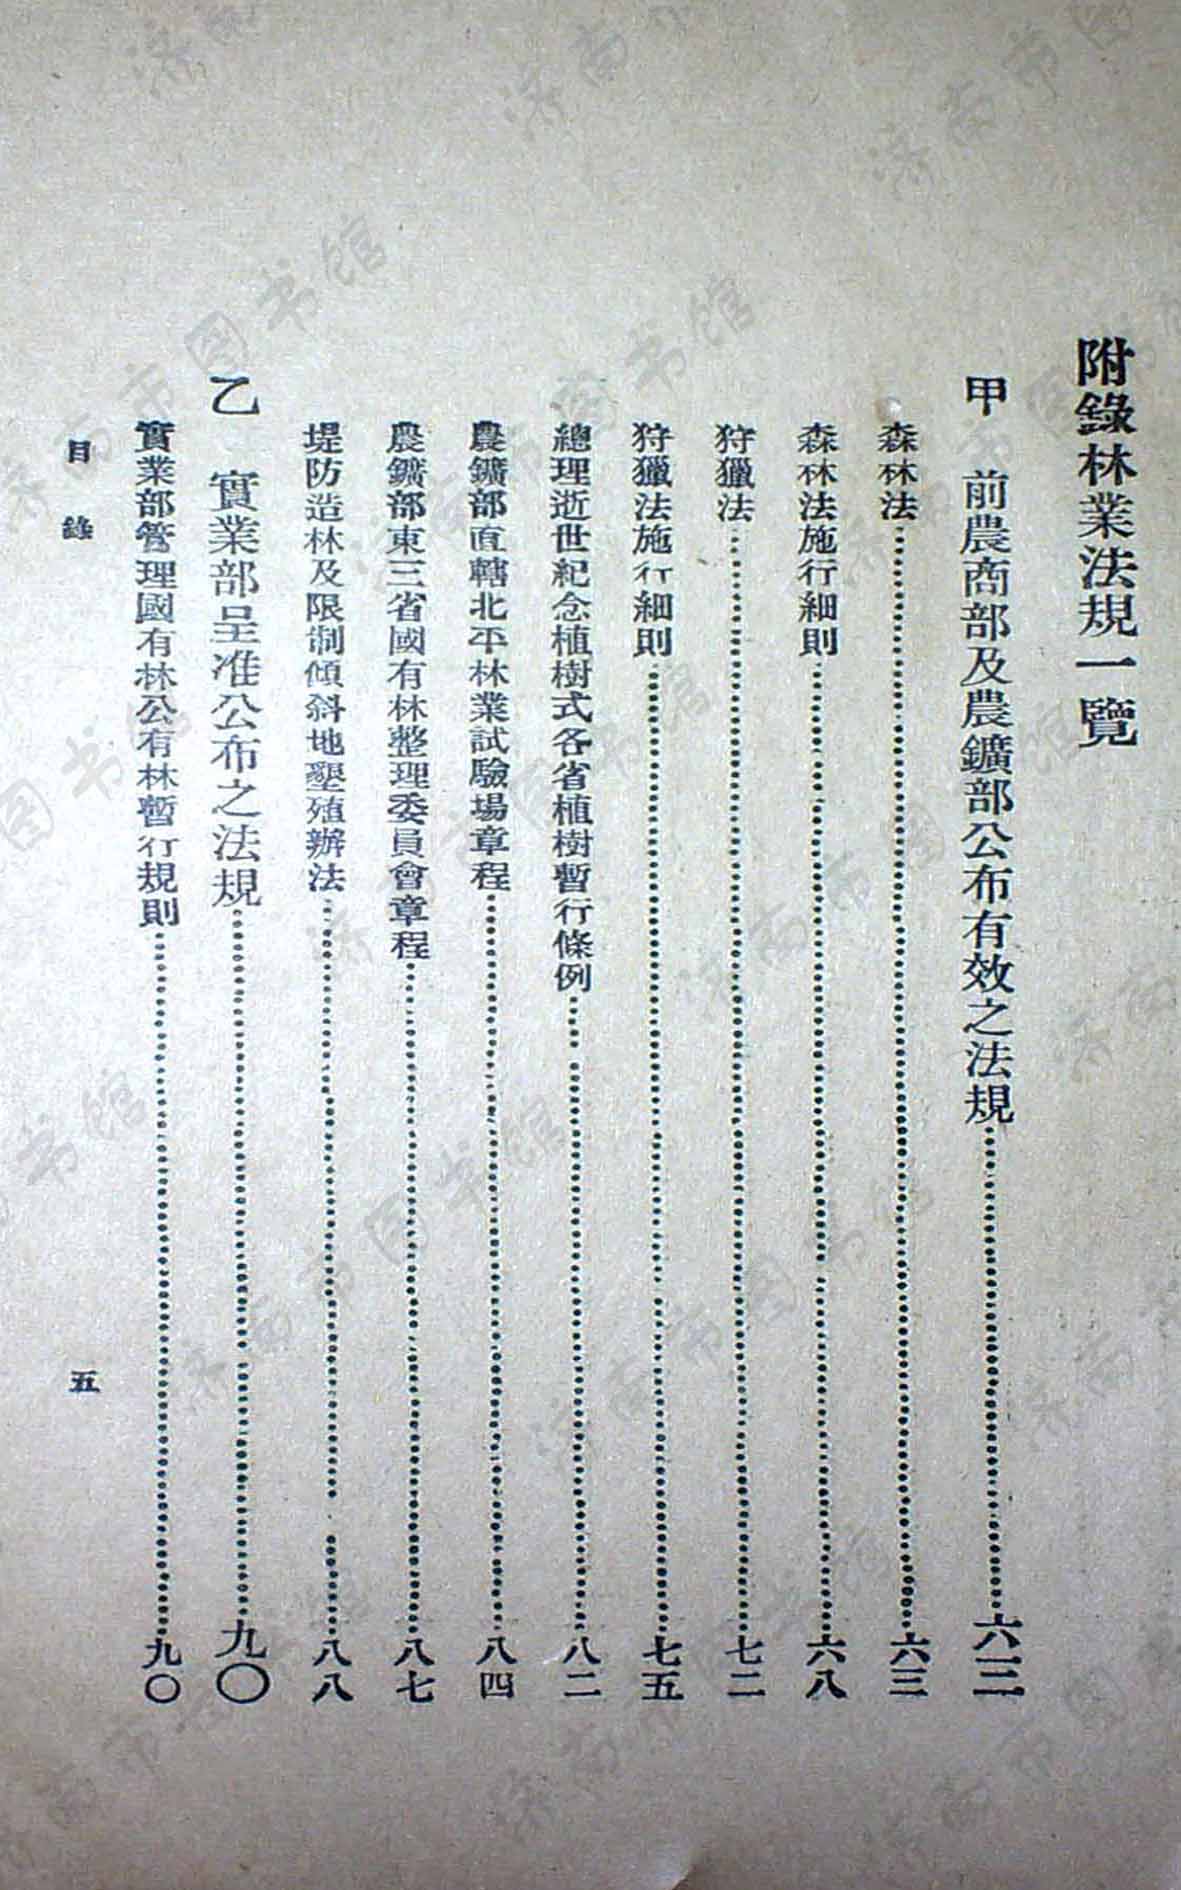 附錄林業法規一覽
甲 前農商部及農鑛部公布有效之法規……六三
森林法……六三
森林法施行細則……六八
狩獵法……七二
狩獵法施行細則……七五
總理逝世紀念植樹式各省植樹暫行條例……八二
農鑛部直轄北平林業試驗場章程……八四
農鑛部東三省國有林整理委員會章程……八七
堤防造林及限制傾斜地墾殖辦法……八八
乙 實業部呈准公布之法規……九〇
實業部管理國有林公有林暫行規則……九〇
目錄 五
济南市图书馆